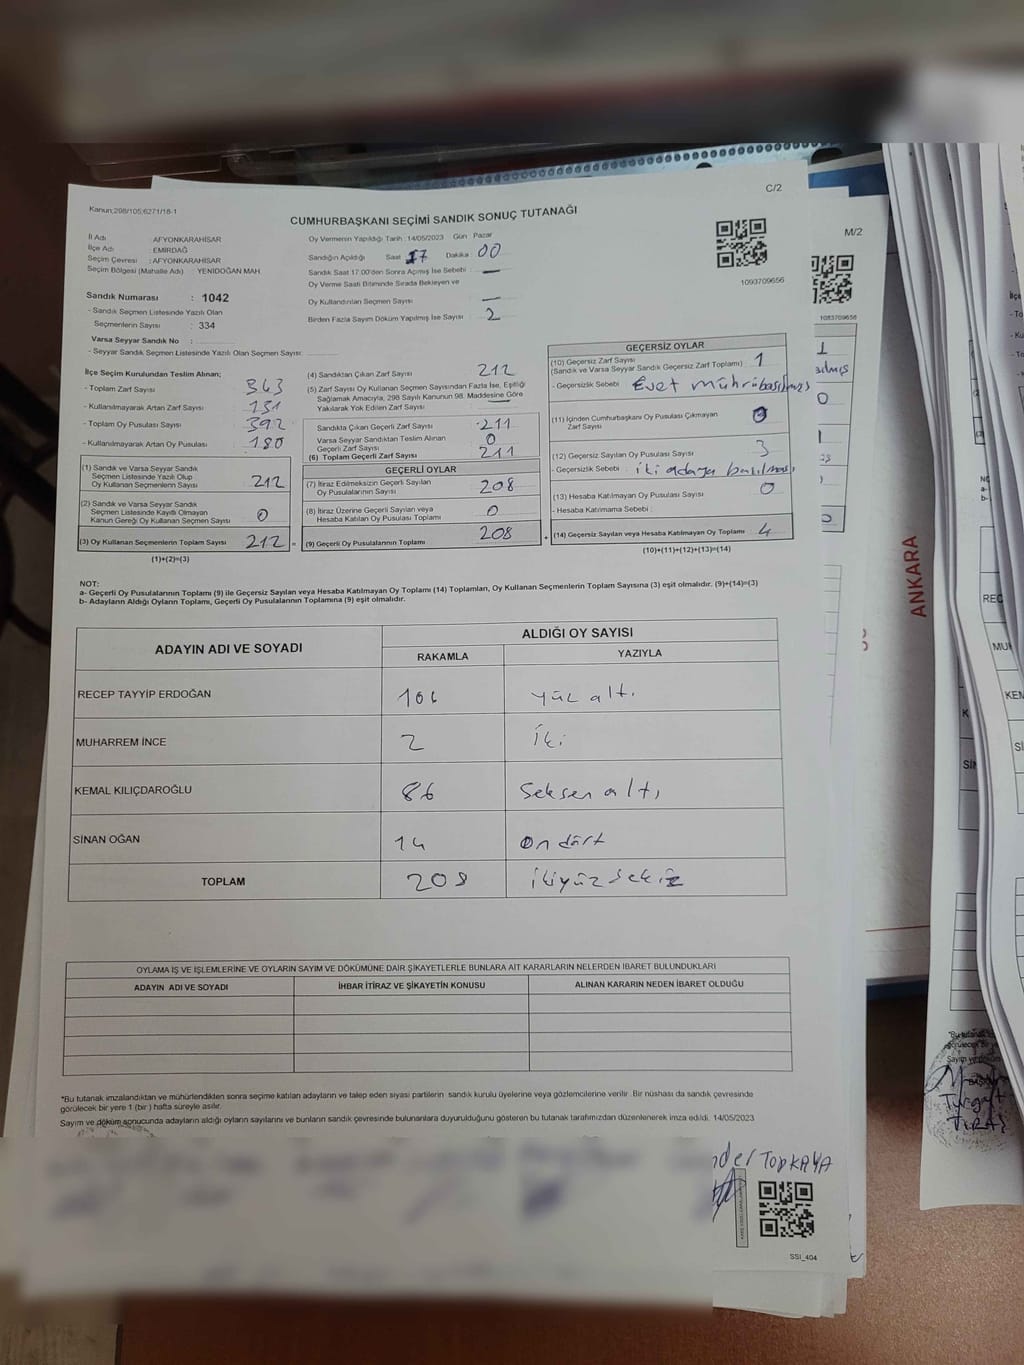 C/2
Kanun;298/105;6271/18-1
CUMHURBAŞKANI SEÇİMİ SANDIK SONUÇ TUTANAĞI
İl Adı : AFYONKARAHİSAR
İlçe Adı : EMİRDAĞ
Seçim Çevresi : AFYONKARAHİSAR
Seçim Bölgesi (Mahalle Adı) : YENİDOĞAN MAH.
Sandık Numarası : 1042
- Sandık Seçmen Listesinde Yazılı Olan
Seçmenlerin Sayısı : 334
Varsa Seyyar Sandık No :
- Seyyar Sandık Seçmen Listesinde Yazılı Olan Seçmen Sayısı:
Oy Vermenin Yapıldığı Tarih : 14/05/2023 Gün Pazar
Sandığın Açıldığı Saat 17 Dakika 00
Sandık Saat 17:00'den Sonra Açılmış İse Sebebi : —
Oy Verme Saati Bitiminde Sırada Bekleyen ve
Oy Kullandırılan Seçmen Sayısı —
Birden Fazla Sayım Döküm Yapılmış İse Sayısı : 2
1093709656
İlçe Seçim Kurulundan Teslim Alınan;
- Toplam Zarf Sayısı 343
- Kullanılmayarak Artan Zarf Sayısı : 131
- Toplam Oy Pusulası Sayısı : 392
- Kullanılmayarak Artan Oy Pusulası : 180
(1) Sandık ve Varsa Seyyar Sandık
Seçmen Listesinde Yazılı Olup
Oy Kullanan Seçmenlerin Sayısı 212
(2) Sandık ve Varsa Seyyar Sandık
Seçmen Listesinde Kayıtlı Olmayan
Kanun Gereği Oy Kullanan Seçmen Sayısı 0
(3) Oy Kullanan Seçmenlerin Toplam Sayısı 212
(1)+(2)=(3)
(4) Sandıktan Çıkan Zarf Sayısı 212
(5) Zarf Sayısı Oy Kullanan Seçmen Sayısından Fazla İse, Eşitliği
Sağlamak Amacıyla, 298 Sayılı Kanunun 98. Maddesine Göre
Yakılarak Yok Edilen Zarf Sayısı : —
Sandıkta Çıkan Geçerli Zarf Sayısı : 211
Varsa Seyyar Sandıktan Teslim Alınan
Geçerli Zarf Sayısı : 0
(6) Toplam Geçerli Zarf Sayısı 211
GEÇERLİ OYLAR
(7) İtiraz Edilmeksizin Geçerli Sayılan
Oy Pusulalarının Sayısı 208
(8) İtiraz Üzerine Geçerli Sayılan veya
Hesaba Katılan Oy Pusulası Toplamı 0
= (9) Geçerli Oy Pusulalarının Toplamı 208
GEÇERSİZ OYLAR
(10) Geçersiz Zarf Sayısı
(Sandık ve Varsa Seyyar Sandık Geçersiz Zarf Toplamı) : 1
- Geçersizlik Sebebi : Evet mührü basılmış
(11) İçinden Cumhurbaşkanı Oy Pusulası Çıkmayan
Zarf Sayısı 0
(12) Geçersiz Sayılan Oy Pusulası Sayısı 3
- Geçersizlik Sebebi : iki adaya basılması
(13) Hesaba Katılmayan Oy Pusulası Sayısı 0
- Hesaba Katılmama Sebebi :
+ (14) Geçersiz Sayılan veya Hesaba Katılmayan Oy Toplamı 4
(10)+(11)+(12)+(13)=(14)
NOT:
a- Geçerli Oy Pusulalarının Toplamı (9) ile Geçersiz Sayılan veya Hesaba Katılmayan Oy Toplamı (14) Toplamları, Oy Kullanan Seçmenlerin Toplam Sayısına (3) eşit olmalıdır. (9)+(14)=(3)
b- Adayların Aldığı Oyların Toplamı, Geçerli Oy Pusulalarının Toplamına (9) eşit olmalıdır.
ADAYIN ADI VE SOYADI ALDIĞI OY SAYISI
RAKAMLA YAZIYLA
RECEP TAYYİP ERDOĞAN 106 Yüz altı
MUHARREM İNCE 2 İki
KEMAL KILIÇDAROĞLU 86 Seksen altı
SİNAN OĞAN 14 On dört
TOPLAM 208 İkiyüz sekiz
OYLAMA İŞ VE İŞLEMLERİNE VE OYLARIN SAYIM VE DÖKÜMÜNE DAİR ŞİKAYETLERLE BUNLARA AİT KARARLARIN NELERDEN İBARET BULUNDUKLARI
ADAYIN ADI VE SOYADI İHBAR İTİRAZ VE ŞİKAYETİN KONUSU ALINAN KARARIN NEDEN İBARET OLDUĞU
*Bu tutanak imzalandıktan ve mühürlendikten sonra seçime katılan adayların ve talep eden siyasi partilerin sandık kurulu üyelerine veya gözlemcilerine verilir. Bir nüshası da sandık çevresinde
görülecek bir yere 1 (bir ) hafta süreyle asılır.
Sayım ve döküm sonucunda adayların aldığı oyların sayılarını ve bunların sandık çevresinde bulunanlara duyurulduğunu gösteren bu tutanak tarafımızdan düzenlenerek imza edildi. 14/05/2023
nder TOPKAYA
SSI_404
M/2
1083709656
ANKARA
Turgut
TIRAŞ